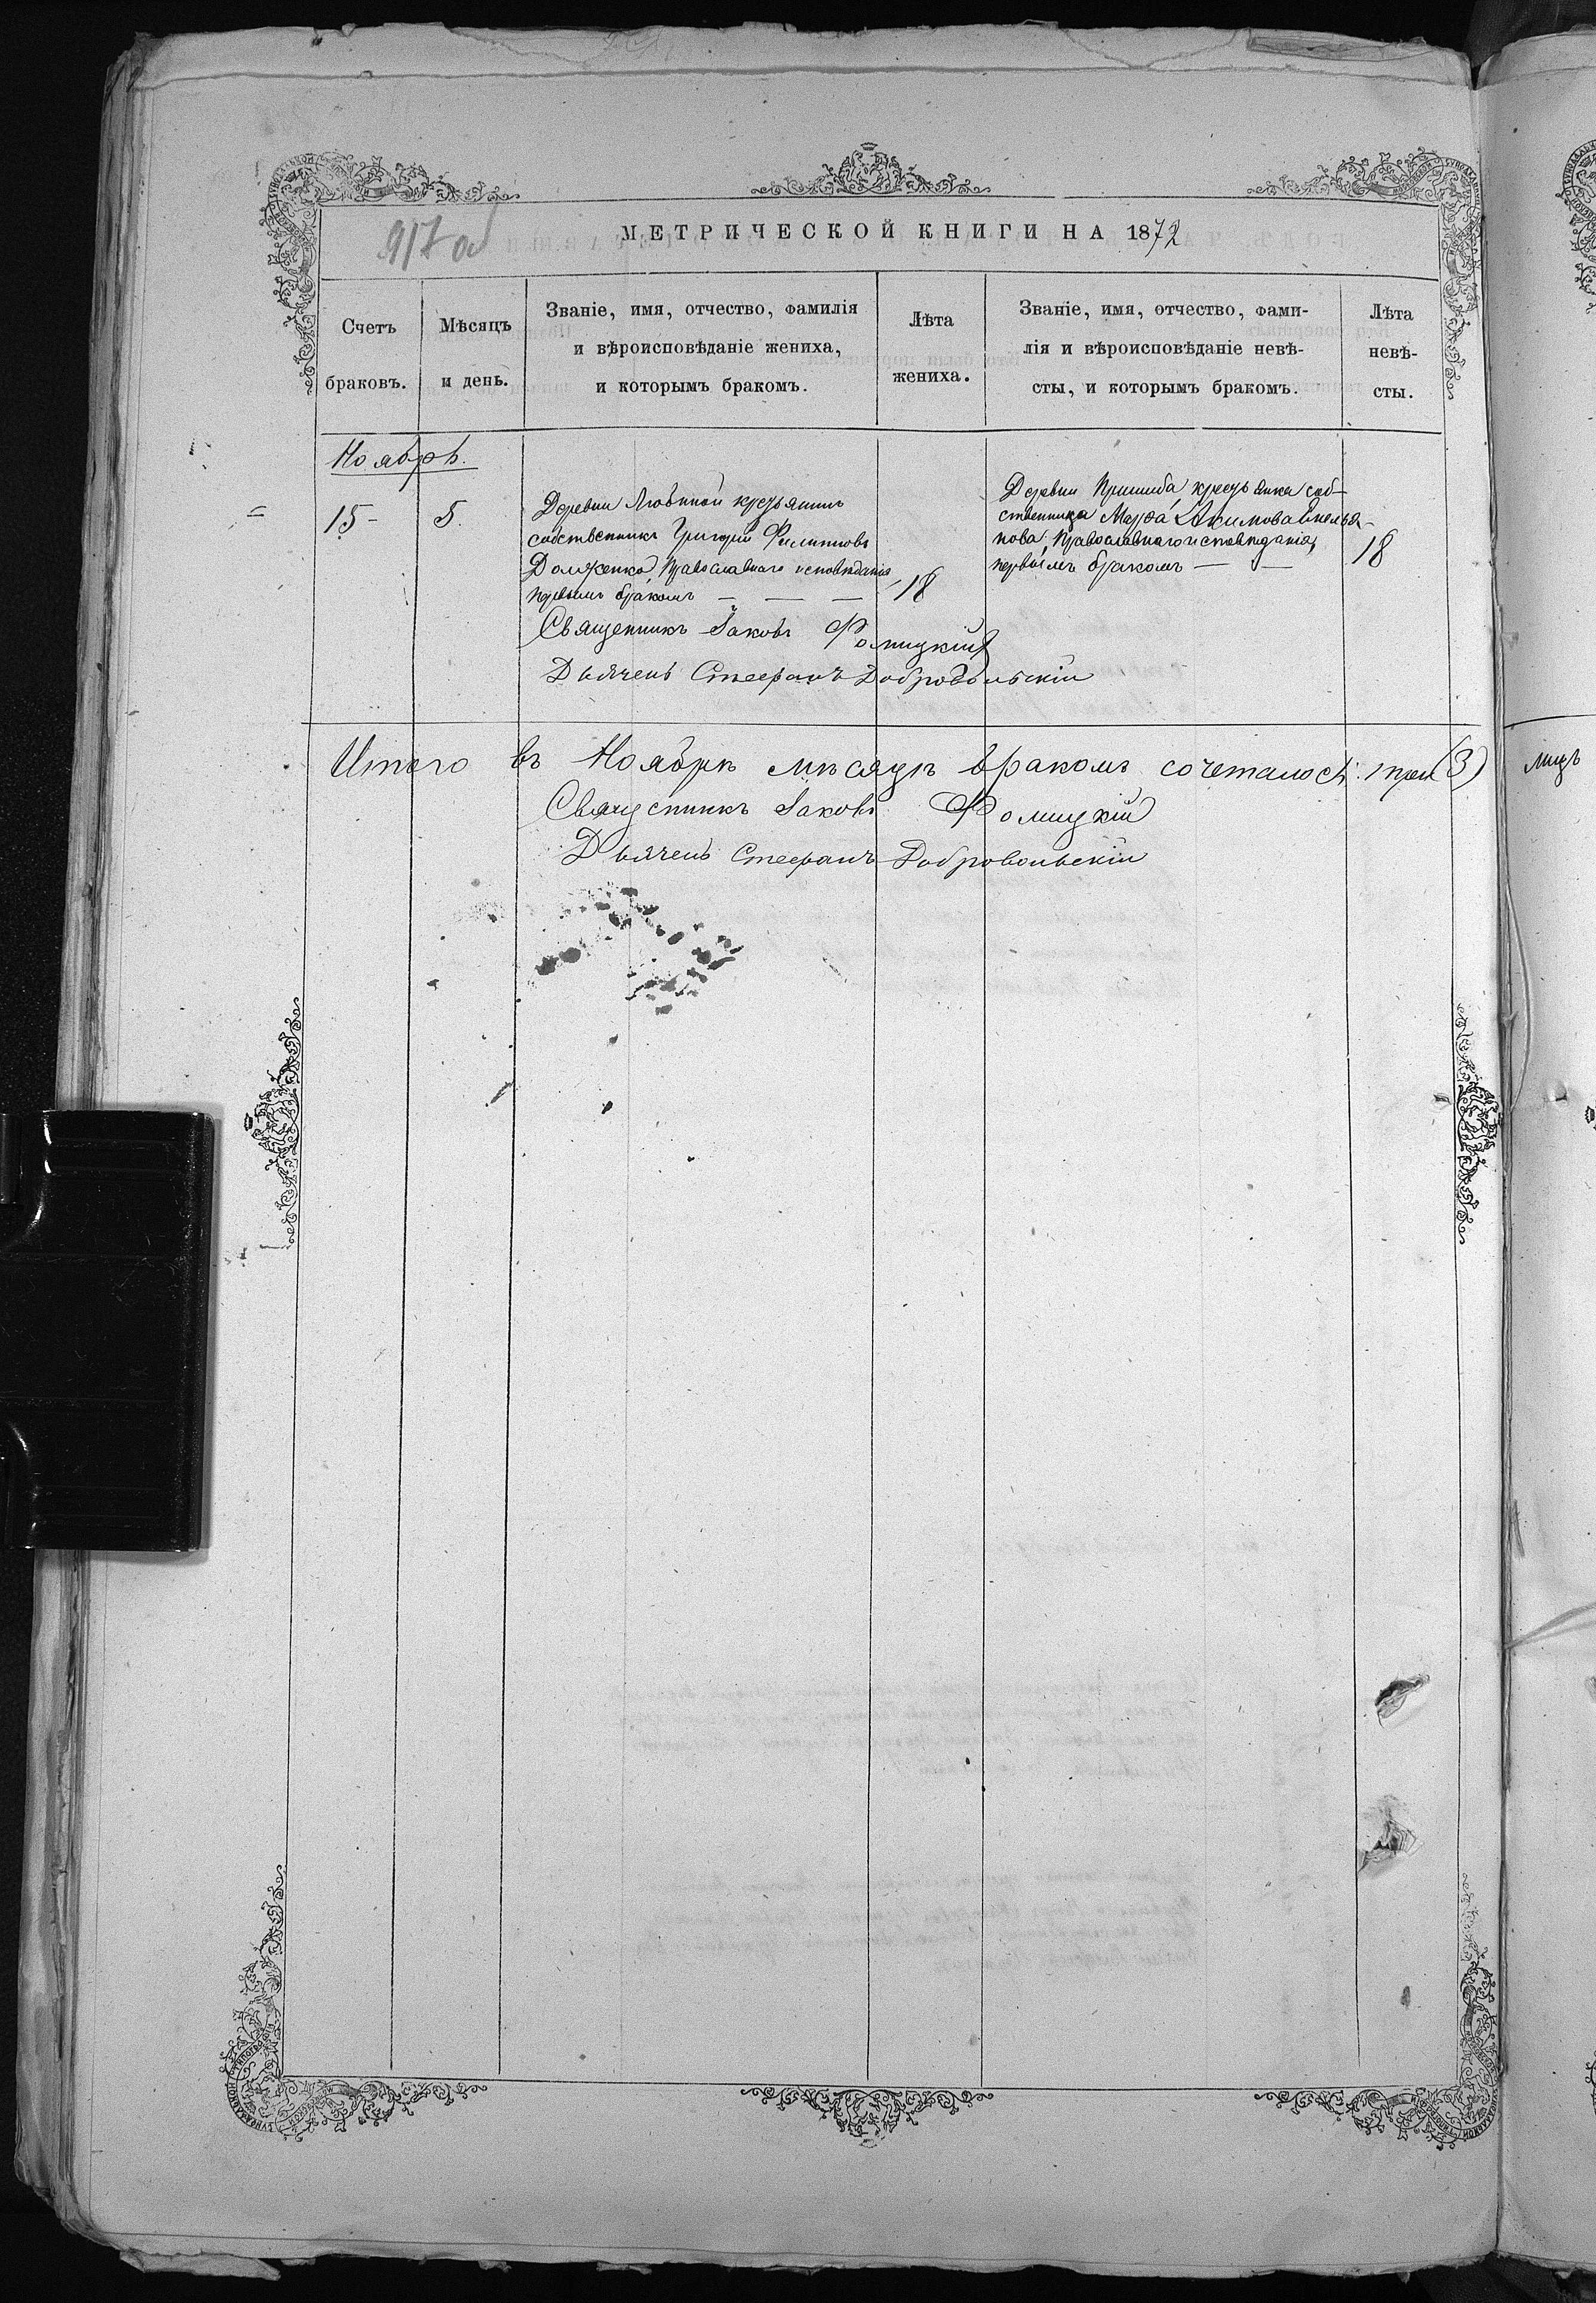 917 об
МЕТРИЧЕСКОЙ КНИГИ НА 1872
Счетъ
браковъ.
Мѣсяцъ
и день.
Званіе, имя, отчество, фамилія
и вѣроисповѣданіе жениха,
и которымъ бракомъ.
Лѣта
жениха.
Званіе, имя, отчество, фами-
лія и вѣроисповѣданіе невѣ-
сты, и которымъ бракомъ.
Лѣта
невѣ-
сты.
Ноябрь.
15 - 5.
Деревни Любиной крестьянинъ
собственникъ Григорій Филиповъ
Долженко, Православнаго исповѣданія,
первымъ бракомъ — — —
18
Деревни Пришиба, крестьянка соб-
ственница Марѳа Акимова Емелья-
нова, Православнаго исповѣданія,
первымъ бракомъ — —
18
Священникъ Іаковъ Фомицкій
Дьячекъ Стефанъ Добровольскій
Итого въ Ноябрѣ мѣсяцѣ бракомъ сочеталось три (3)
лицъ
Священникъ Іаковъ Фомицкій
Дьячекъ Стефанъ Добровольскій